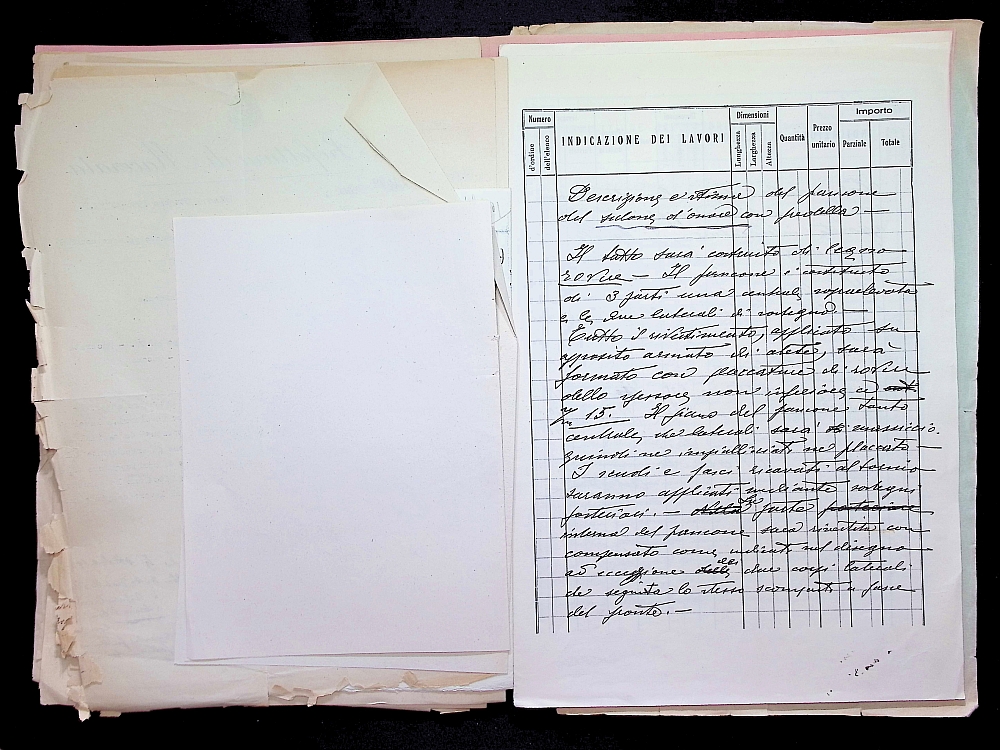 Numero
d'ordine
dell'elenco
INDICAZIONE DEI LAVORI
Dimensioni
Lunghezza
Larghezza
Altezza
Quantità
Prezzo
unitario
Importo
Parziale
Totale
Descrizione e stima del pancone
del salone d'onore con predella —
Il tutto sarà costruito di legno
rovere — Il pancone è costituito
di 3 parti una centrale sopraelevata
e le due laterali di sostegno. —
Tutto il rivestimento, applicato su
apposito armato di abete, sarà
formato con placcature di rovere
dello spessore non inferiore a
m/m 15. Il piano del pancone tanto
centrale che laterali sarà massiccio.
quindi nè impellicciati nè placcato —
I scudi e fasci ricavati al tornio
saranno applicati mediante sostegni
posteriori. — La parte posteriore
interna del pancone sarà rivestita con
compensato come indicati nel disegno
ad eccezione dei due corpi laterali
lo stesso scomparti a fasce
del fronte. —